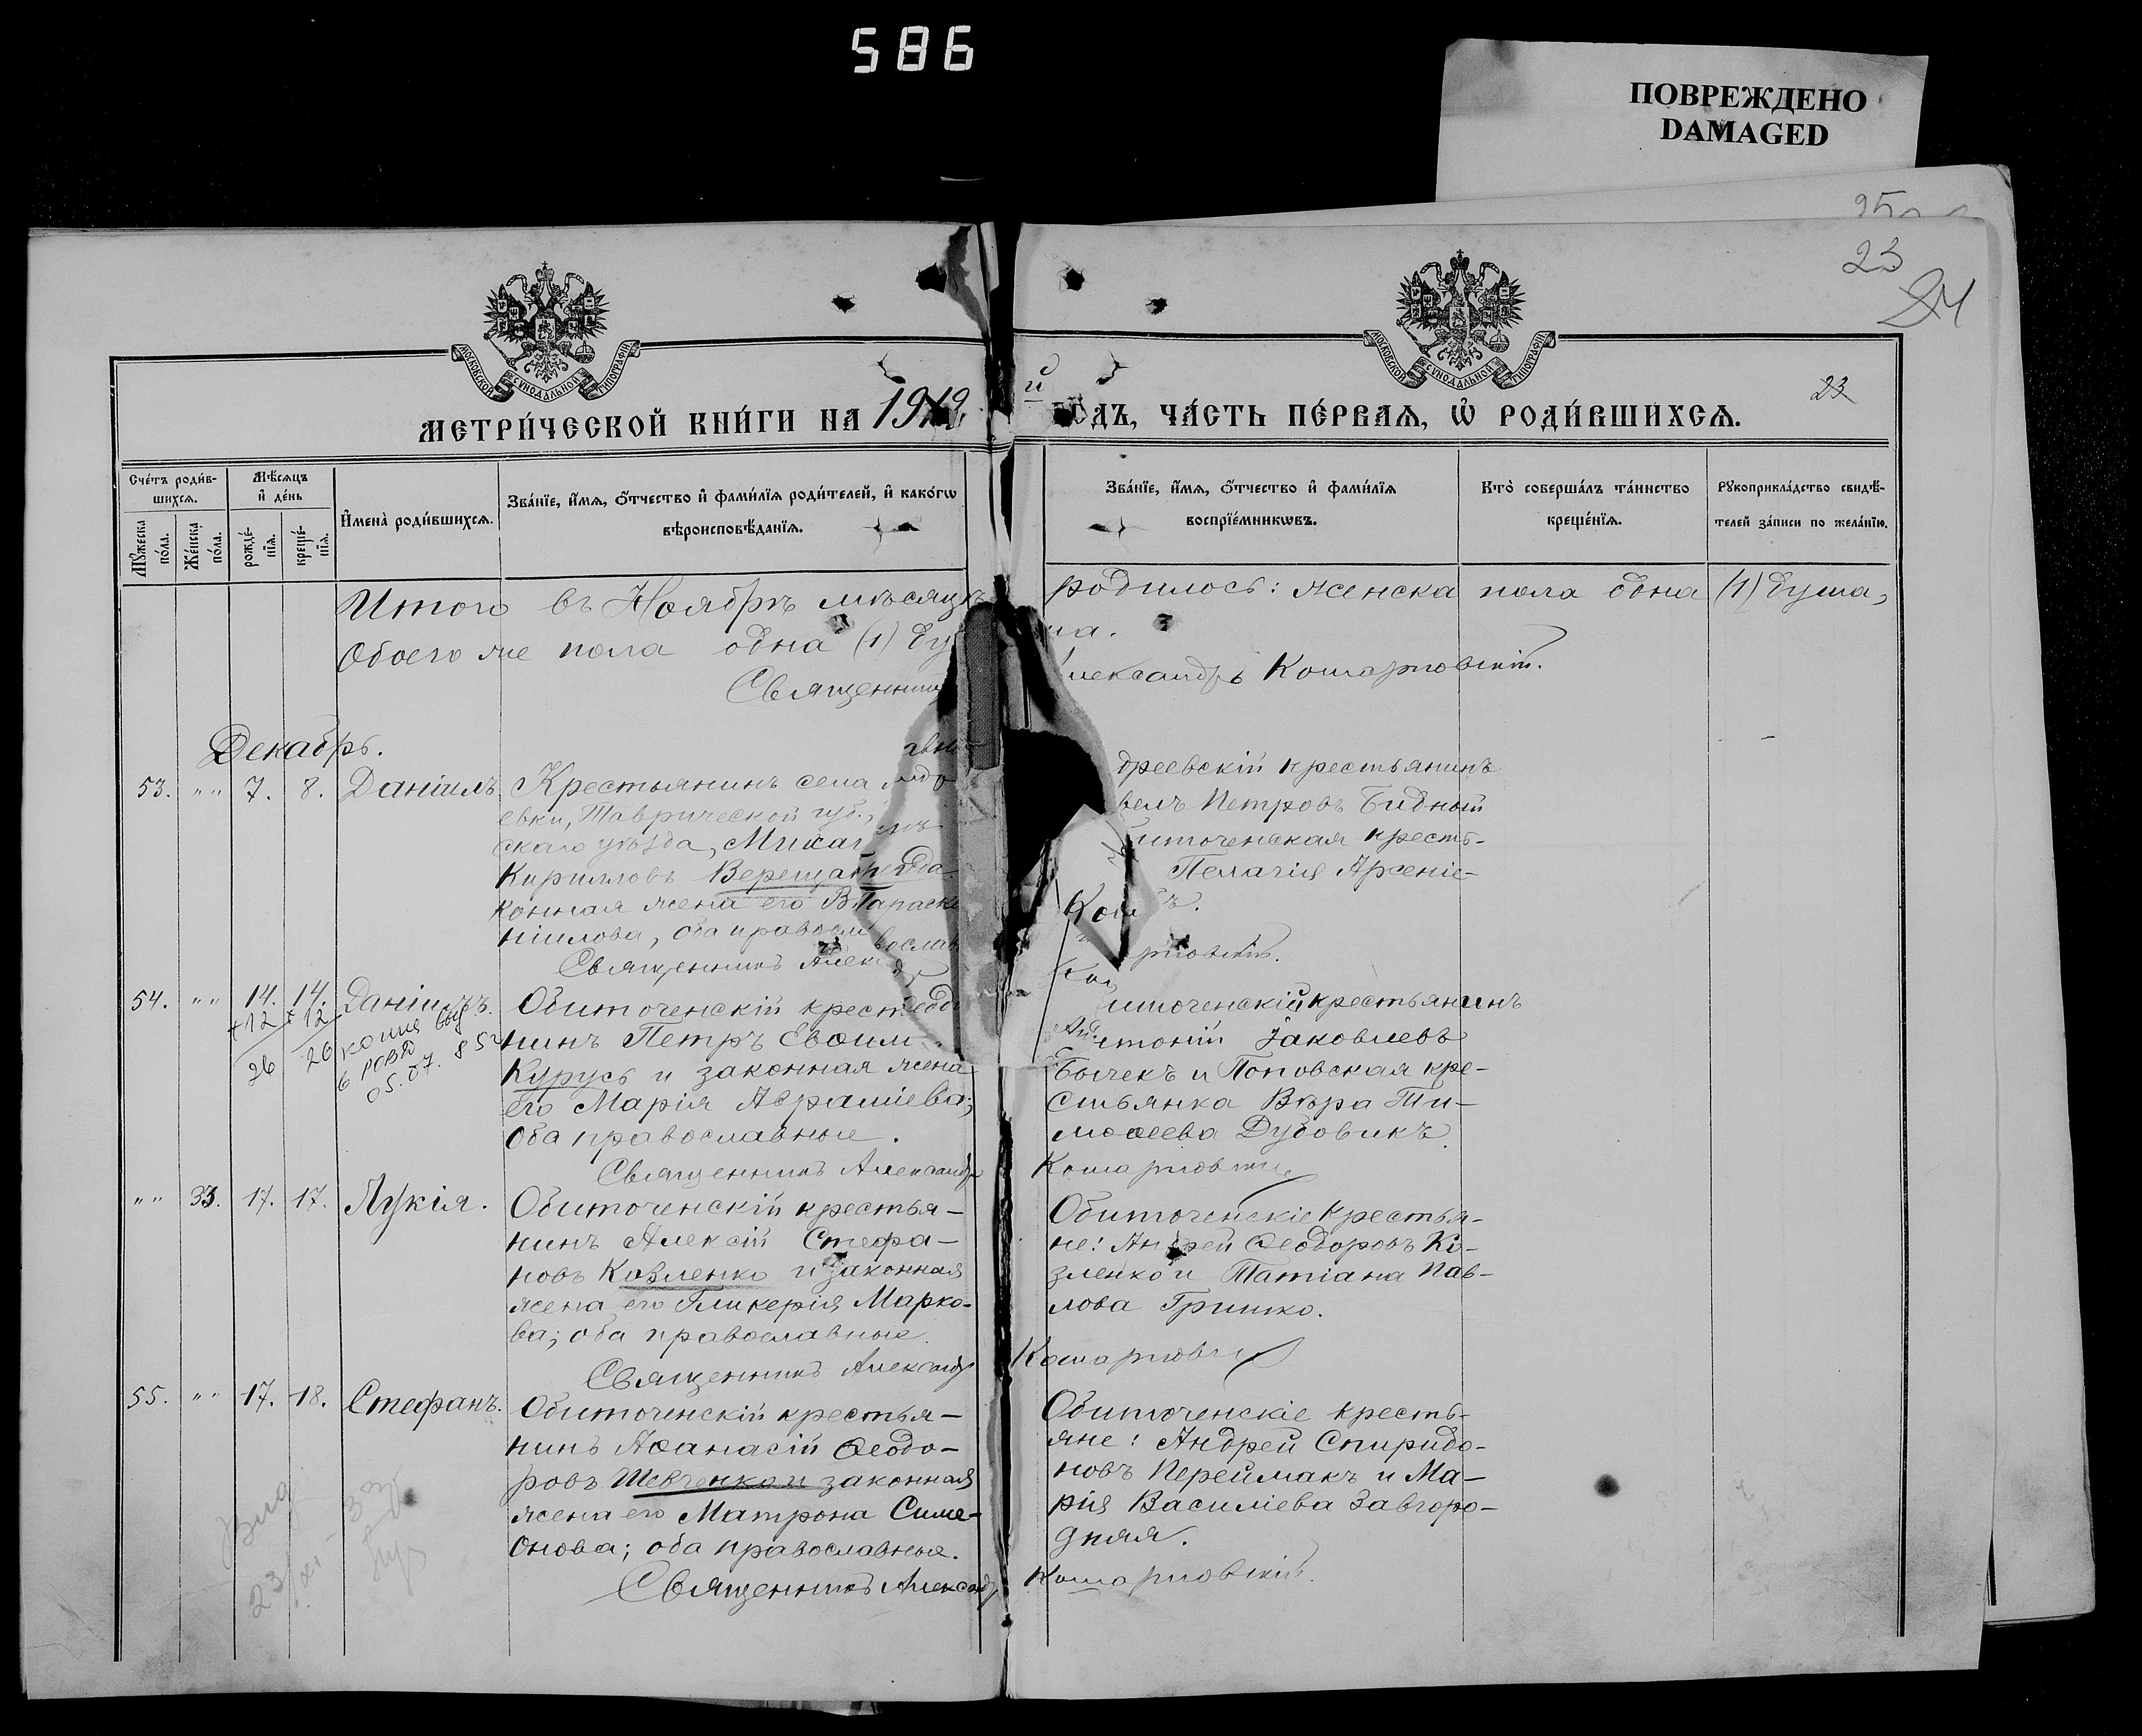 586
ПОВРЕЖДЕНО
DAMAGED
25
23
24
МОСКОВСКОЙ СѴНОДАЛЬНОЙ ТИПОГРАФІИ
МОСКОВСКОЙ СѴНОДАЛЬНОЙ ТИПОГРАФІИ
23
МЕТРИ́ЧЕСКОЙ КНИ́ГИ НА 1912 й
ГОДЪ, ЧА́СТЬ ПЕ́РВАѦ, Ѡ҆ РОДИ́ВШИХСѦ.
Сче́тъ роди́в-
шихсѧ.
Мѣ́сѧцъ
и҆ де́нь
Мꙋ́жеска
по́ла.
Же́нска
по́ла.
рожде́-
нїѧ.
креще́-
нїѧ.
И҆мена̀ роди́вшихсѧ.
Зва́нїе, и҆́мѧ, ѻ҆́тчество и҆ фами́лїѧ роди́телей, и҆ како́гѡ
вѣроисповѣ́данїѧ.
Зва́нїе, и҆́мѧ, ѻ҆́тчество и҆ фами́лїѧ
воспрїе́мникѡвъ.
Кто̀ соверша́лъ та́инство
креще́нїѧ.
Рꙋкоприкла́дство свидѣ́-
телей за́писи по жела́нїю.
Итого въ Ноябрѣ мѣсяцѣ родилось: женска пола одна (1) душа,
Обоего же пола одна (1) ду ша.
Священник Александръ Кошарновскій.
Декабрь.
53. " " 7. 8. Даніилъ
Крестьянинъ села
евки, Таврической губ.,
скаго уѣзда, Михаи
Кирилловъ
конная жена его Параске
ніилова, оба правосл
Священникъ Алек
дреевскій крестьянинъ
велъ Петровъ Бидный
иточенская кресть-
Пелагія Арсеніе-
54. " " 14. 14. Даніилъ.
+12 +12
26 26
копия выд
05.07.85
Обиточенскій крест
нинъ Петръ Евѳим
Курусь и законная жена
его Марія Авраміева;
оба православные.
Священникъ Александръ
иточенскій крестьянинъ
Антоній Іаковлевъ
Бычекъ и Поповская кре-
стьянка Вѣра Ти-
моѳеева Дубовикъ.
Кошарновскій
" " 33. 17. 17. Лукія.
Обиточенскій крестья-
нинъ Алексій Стефа-
новъ Козленко и законная
жена его Гликерія Марко-
ва; оба православные.
Священникъ Александръ
Обиточенскіе крестья-
не: Андрей Ѳеодоровъ Ко-
зленко и Татіана Пав-
лова Гришко.
Кошарновскій
55. " " 17. 18. Стефанъ.
Обиточенскій крестья-
нинъ Аѳанасій Ѳеодо-
ровъ Шевченко и законная
жена его Матрона Симе-
онова; оба православные.
Священникъ Александръ
Обиточенскіе кресть-
яне: Андрей Спиридо-
новъ Переймакъ и Ма-
рія Василіева Завгоро-
дняя.
Кошарновскій.